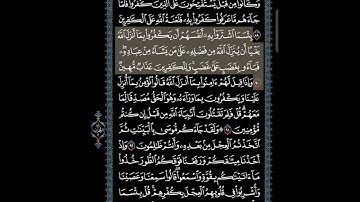 وَكَانُوا۟ مِن قَبْلُ يَسْتَفْتِحُونَ عَلَى ٱلَّذِينَ كَفَرُوا۟ فَلَمَّا
جَآءَهُم مَّا عَرَفُوا۟ كَفَرُوا۟ بِهِۦ فَلَعْنَةُ ٱللَّهِ عَلَى ٱلْكَٰفِرِينَ
٨٩ بِئْسَمَا ٱشْتَرَوْا۟ بِهِۦٓ أَنفُسَهُمْ أَن يَكْفُرُوا۟ بِمَآ أَنزَلَ ٱللَّهُ
بَغْيًا أَن يُنَزِّلَ ٱللَّهُ مِن فَضْلِهِۦ عَلَىٰ مَن يَشَآءُ مِنْ عِبَادِهِۦ
فَبَآءُو بِغَضَبٍ عَلَىٰ غَضَبٍ وَلِلْكَٰفِرِينَ عَذَابٌ مُّهِينٌ
٩٠ وَإِذَا قِيلَ لَهُمْ ءَامِنُوا۟ بِمَآ أَنزَلَ ٱللَّهُ قَالُوا۟ نُؤْمِنُ بِمَآ أُنزِلَ
عَلَيْنَا وَيَكْفُرُونَ بِمَا وَرَآءَهُۥ وَهُوَ ٱلْحَقُّ مُصَدِّقًا لِّمَا
مَعَهُمْ قُلْ فَلِمَ تَقْتُلُونَ أَنۢبِيَآءَ ٱللَّهِ مِن قَبْلُ إِن كُنتُم
مُّؤْمِنِينَ ٩١ وَلَقَدْ جَآءَكُم مُّوسَىٰ بِٱلْبَيِّنَٰتِ ثُمَّ
ٱتَّخَذْتُمُ ٱلْعِجْلَ مِنۢ بَعْدِهِۦ وَأَنتُمْ ظَٰلِمُونَ ٩٢ وَإِذْ
أَخَذْنَا مِيثَٰقَكُمْ وَرَفَعْنَا فَوْقَكُمُ ٱلطُّورَ خُذُوا۟
مَآ ءَاتَيْنَٰكُم بِقُوَّةٍ وَٱسْمَعُوا۟ قَالُوا۟ سَمِعْنَا وَعَصَيْنَا
وَأُشْرِبُوا۟ فِى قُلُوبِهِمُ ٱلْعِجْلَ بِكُفْرِهِمْ قُلْ بِئْسَمَا